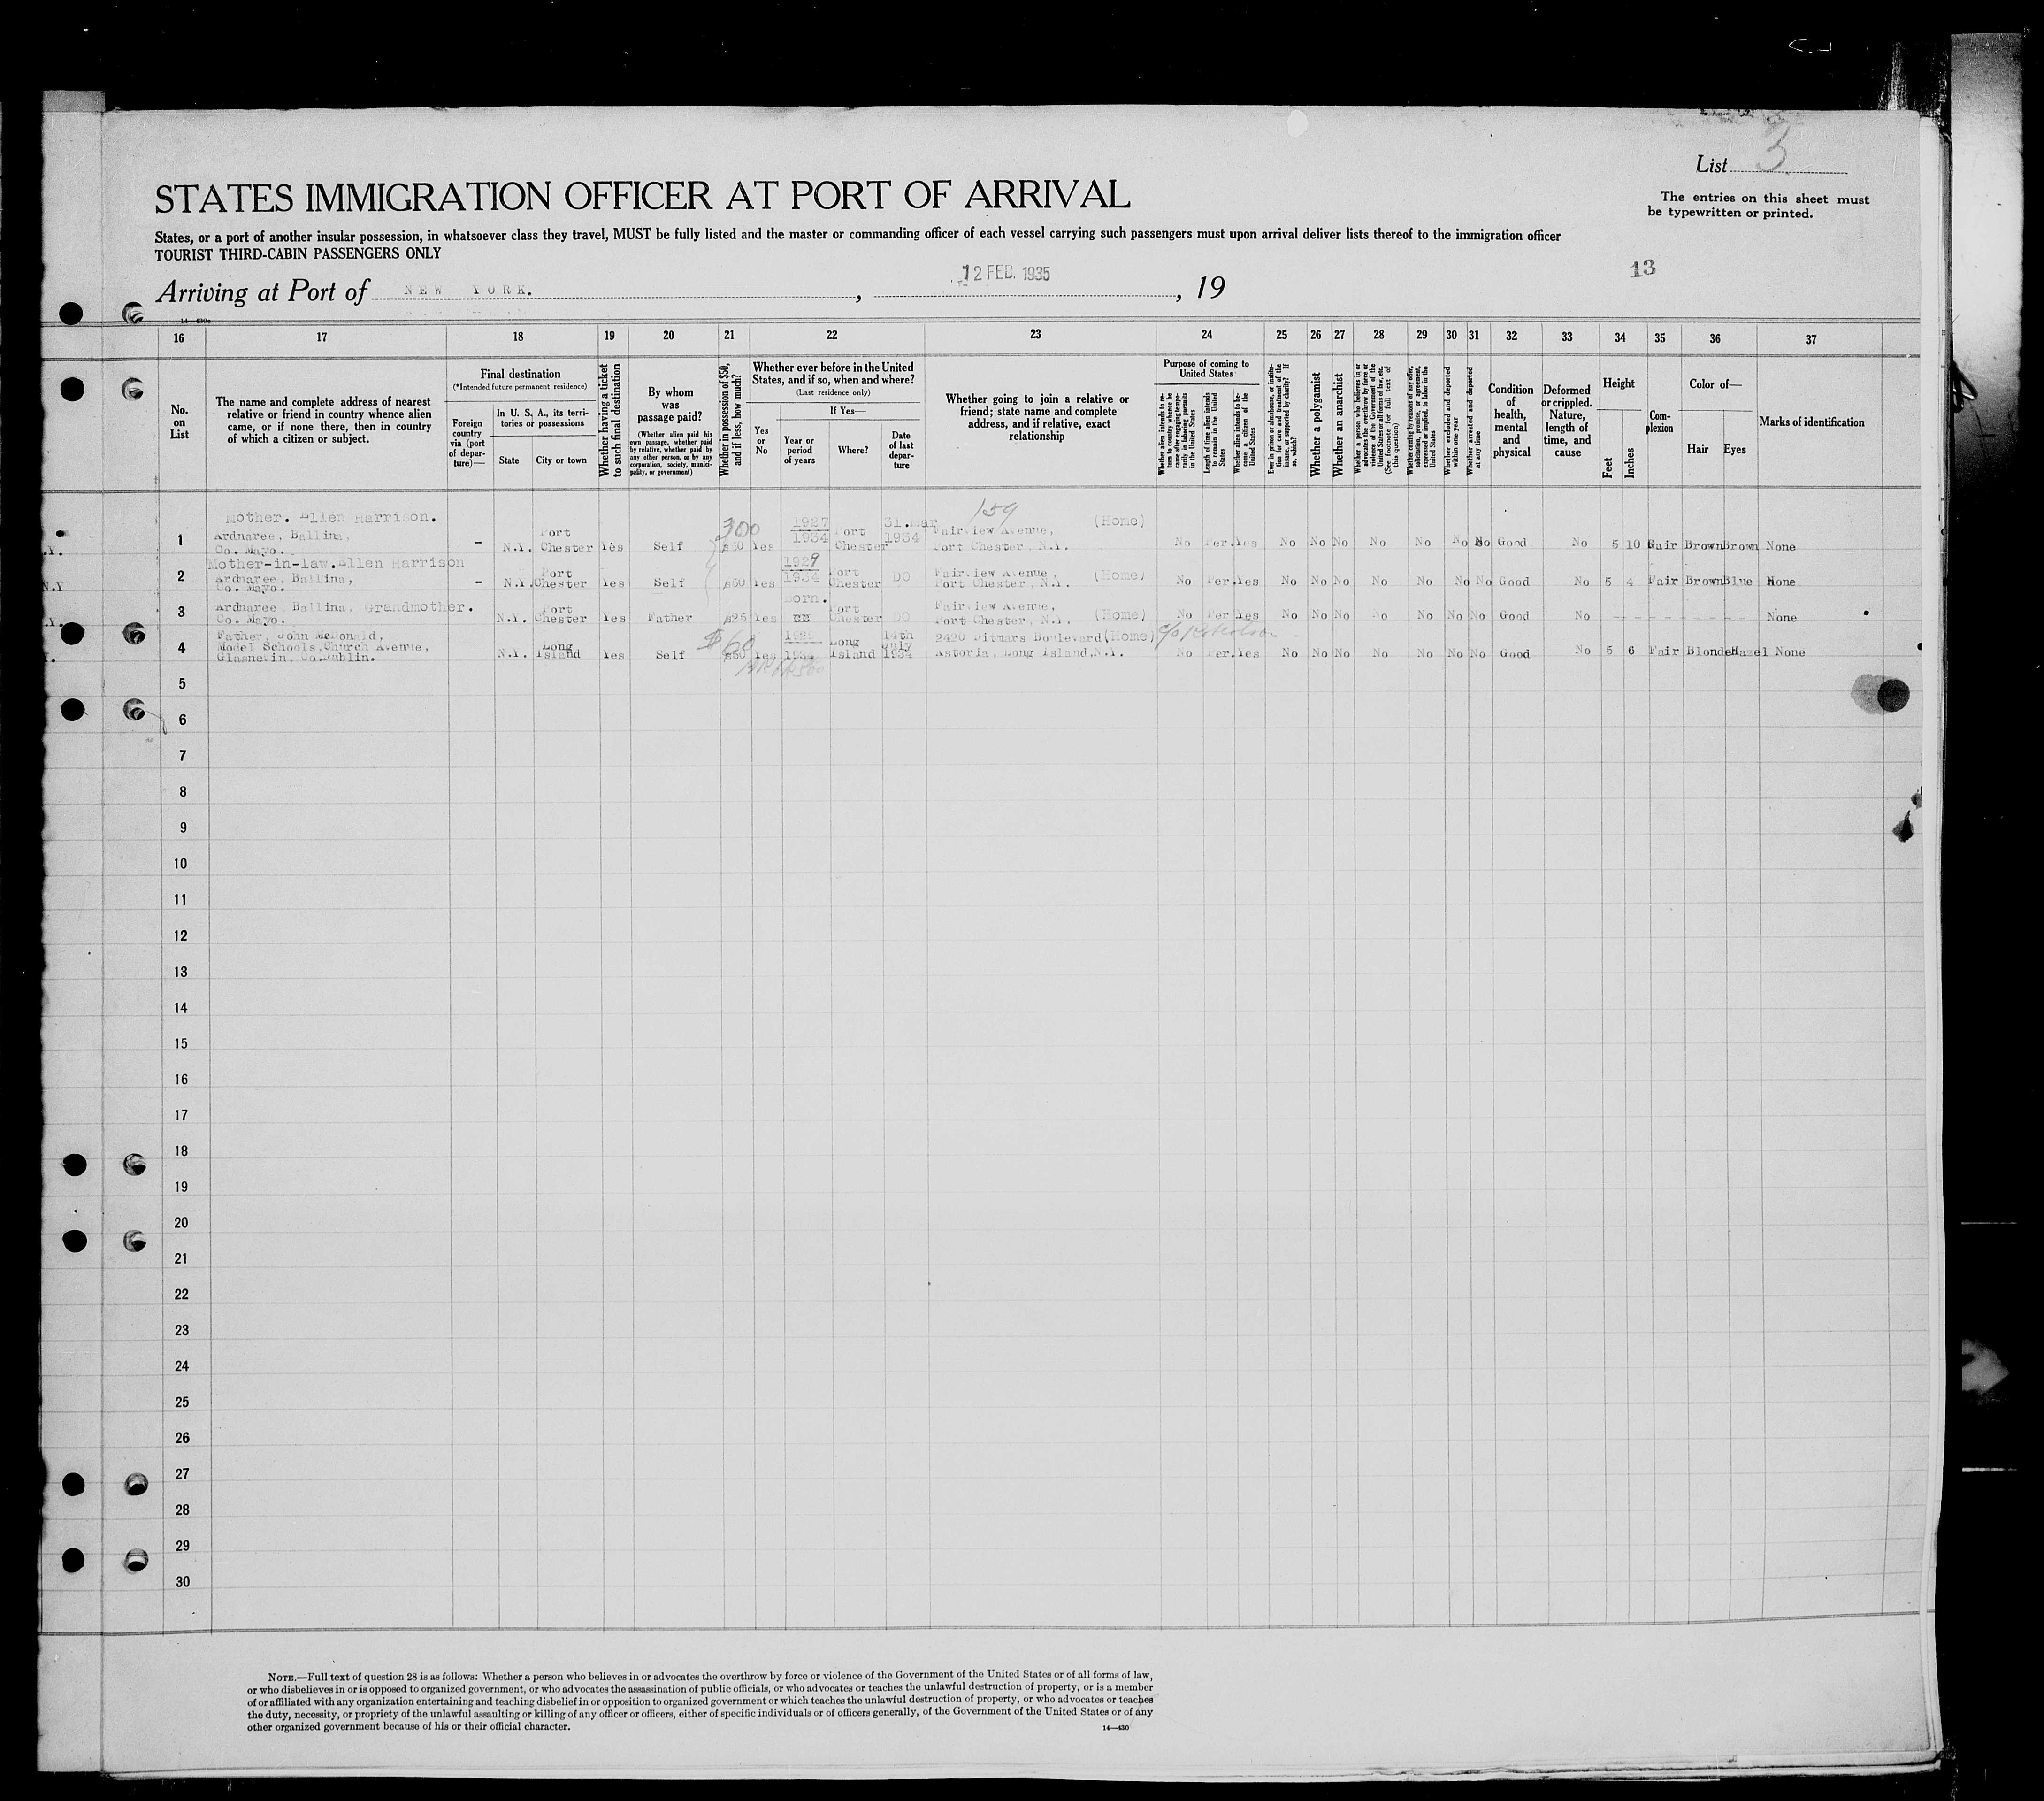 List 3
STATES IMMIGRATION OFFICER AT PORT OF ARRIVAL
The entries on this sheet must
be typewritten or printed.
States, or a port of another insular possession, in whatsoever class they travel, MUST be fully listed and the master or commanding officer of each vessel carrying such passengers must upon arrival deliver lists thereof to the immigration officer
TOURIST THIRD-CABIN PASSENGERS ONLY
Arriving at Port of NEW YORK. , 12 FEB. 1935 , 19
13
16 17 18 19 20 21 22 23 24 25 26 27 28 29 30 31 32 33 34 35 36 37
No. on List
The name and complete address of nearest
relative or friend in country whence alien
came, or if none there, then in country
of which a citizen or subject.
Final destination
(*Intended future permanent residence)
Foreign country via (port of departure)—
In U. S. A., its territories or possessions
State City or town
Whether having a ticket to such final destination
By whom was passage paid?
(Whether alien paid his own passage, whether paid by relative, whether paid by any other person, or by any corporation, society, municipality, or government)
Whether in possession of $50, and if less, how much?
Whether ever before in the United
States, and if so, when and where?
(Last residence only)
Yes or No
If Yes—
Year or period of years
Where?
Date of last departure
Whether going to join a relative or
friend; state name and complete
address, and if relative, exact
relationship
Purpose of coming to United States
Whether alien intends to return to country whence he came after engaging temporarily in laboring pursuits in the United States
Length of time alien intends to remain in the United States
Whether alien intends to become a citizen of the United States
Ever in prison or almshouse, or institution for care and treatment of the insane, or supported by charity? If so, which?
Whether a polygamist
Whether an anarchist
Whether a person who believes in or advocates the overthrow by force or violence of the Government of the United States or all forms of law, etc. (See footnote for full text of this question)
Whether coming by reasons of any offer, solicitation, promise, or agreement, expressed or implied, to labor in the United States
Whether excluded and deported within one year
Whether arrested and deported at any time
Condition of health, mental and physical
Deformed or crippled. Nature, length of time, and cause
Height
Feet Inches
Complexion
Color of—
Hair Eyes
Marks of identification
159
1 Mother. Ellen Harrison. Ardnaree, Ballina, Co. Mayo. – N.Y. Port Chester Yes Self 300 $50 Yes 1927 1934 Port Chester 31.Mar 1934 Fairview Avenue, Port Chester, N.Y. (Home) No Per. Yes No No No No No No No Good No 5 10 Fair Brown Brown None
2 Mother-in-law. Ellen Harrison Ardnaree, Ballina, Co. Mayo. – N.Y. Port Chester Yes Self $50 Yes 1929 1934 Port Chester DO Fairview Avenue, Port Chester, N.Y. (Home) No Per. Yes No No No No No No No Good No 5 4 Fair Brown Blue None
3 Ardnaree, Ballina, Grandmother. Co. Mayo. N.Y. Port Chester Yes Father $25 Yes Born. Port Chester DO Fairview Avenue, Port Chester, N.Y. (Home) No Per. Yes No No No No No No No Good No - - - - - - - None
4 Father, John McDonald, Model Schools, Church Avenue, Glasnevin, Co. Dublin. N.Y. Long Island Yes Self $60 $50 Yes 1934 Long Island 14th July 1934 2420 Ditmars Boulevard (Home) Astoria, Long Island, N.Y. c/o No Per. Yes No No No No No No No Good No 5 6 Fair Blonde Hazel None
5
6
7
8
9
10
11
12
13
14
15
16
17
18
19
20
21
22
23
24
25
26
27
28
29
30
NOTE.—Full text of question 28 is as follows: Whether a person who believes in or advocates the overthrow by force or violence of the Government of the United States or of all forms of law,
or who disbelieves in or is opposed to organized government, or who advocates the assassination of public officials, or who advocates or teaches the unlawful destruction of property, or is a member
of or affiliated with any organization entertaining and teaching disbelief in or opposition to organized government or which teaches the unlawful destruction of property, or who advocates or teaches
the duty, necessity, or propriety of the unlawful assaulting or killing of any officer or officers, either of specific individuals or of officers generally, of the Government of the United States or of any
other organized government because of his or their official character.
14—430